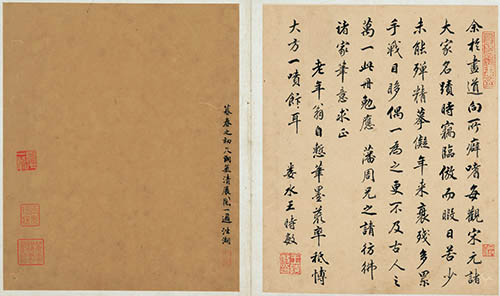 余於畫道向所癖嗜每觀宋元諸
大家名蹟時竊臨倣而暇日苦少
未能殫精摹儗年來衰殘多累
手戰目眵偶一為之更不及古人之
萬一此冊勉應 藩周兄之請彷彿
諸家筆意求正
老年翁自慙筆墨叢率秪博
大方一噴飯耳
婁水王時敏
暮春之初天朗氣清展閱一過